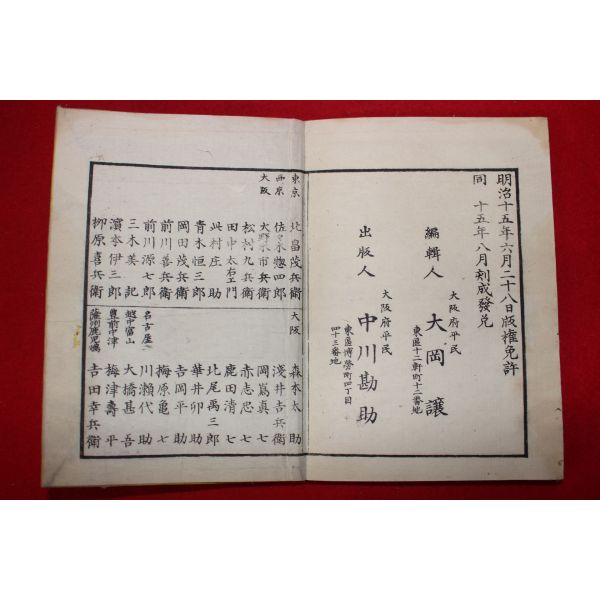 明治十五年六月二十八日版權免許
同 十五年八月刻成發兌
編輯人
大阪府平民
大岡讓
東區十二軒町十二番地
出版人
大阪府平民
中川勘助
東區博勞町四丁目
四十三番地
東京 北畠茂兵衛
西京 佐々木惣四郎
大阪 大野木市兵衛
松村九兵衛
田中太右エ門
此村庄助
青木恒三郎
岡田茂兵衛
前川善兵衛
前川源七郎
三木美記
濱本伊三郎
柳原喜兵衛
大阪 森本太助
淺井吉兵衛
岡嶌真七
赤志忠七
鹿田清七
北尾禹三郎
華井卯助
吉岡平助
梅原亀七
名古屋 川瀬代助
越中富山 大橋甚吾
豊前中津 梅津壽平
薩州鹿児嶋 吉田幸兵衛